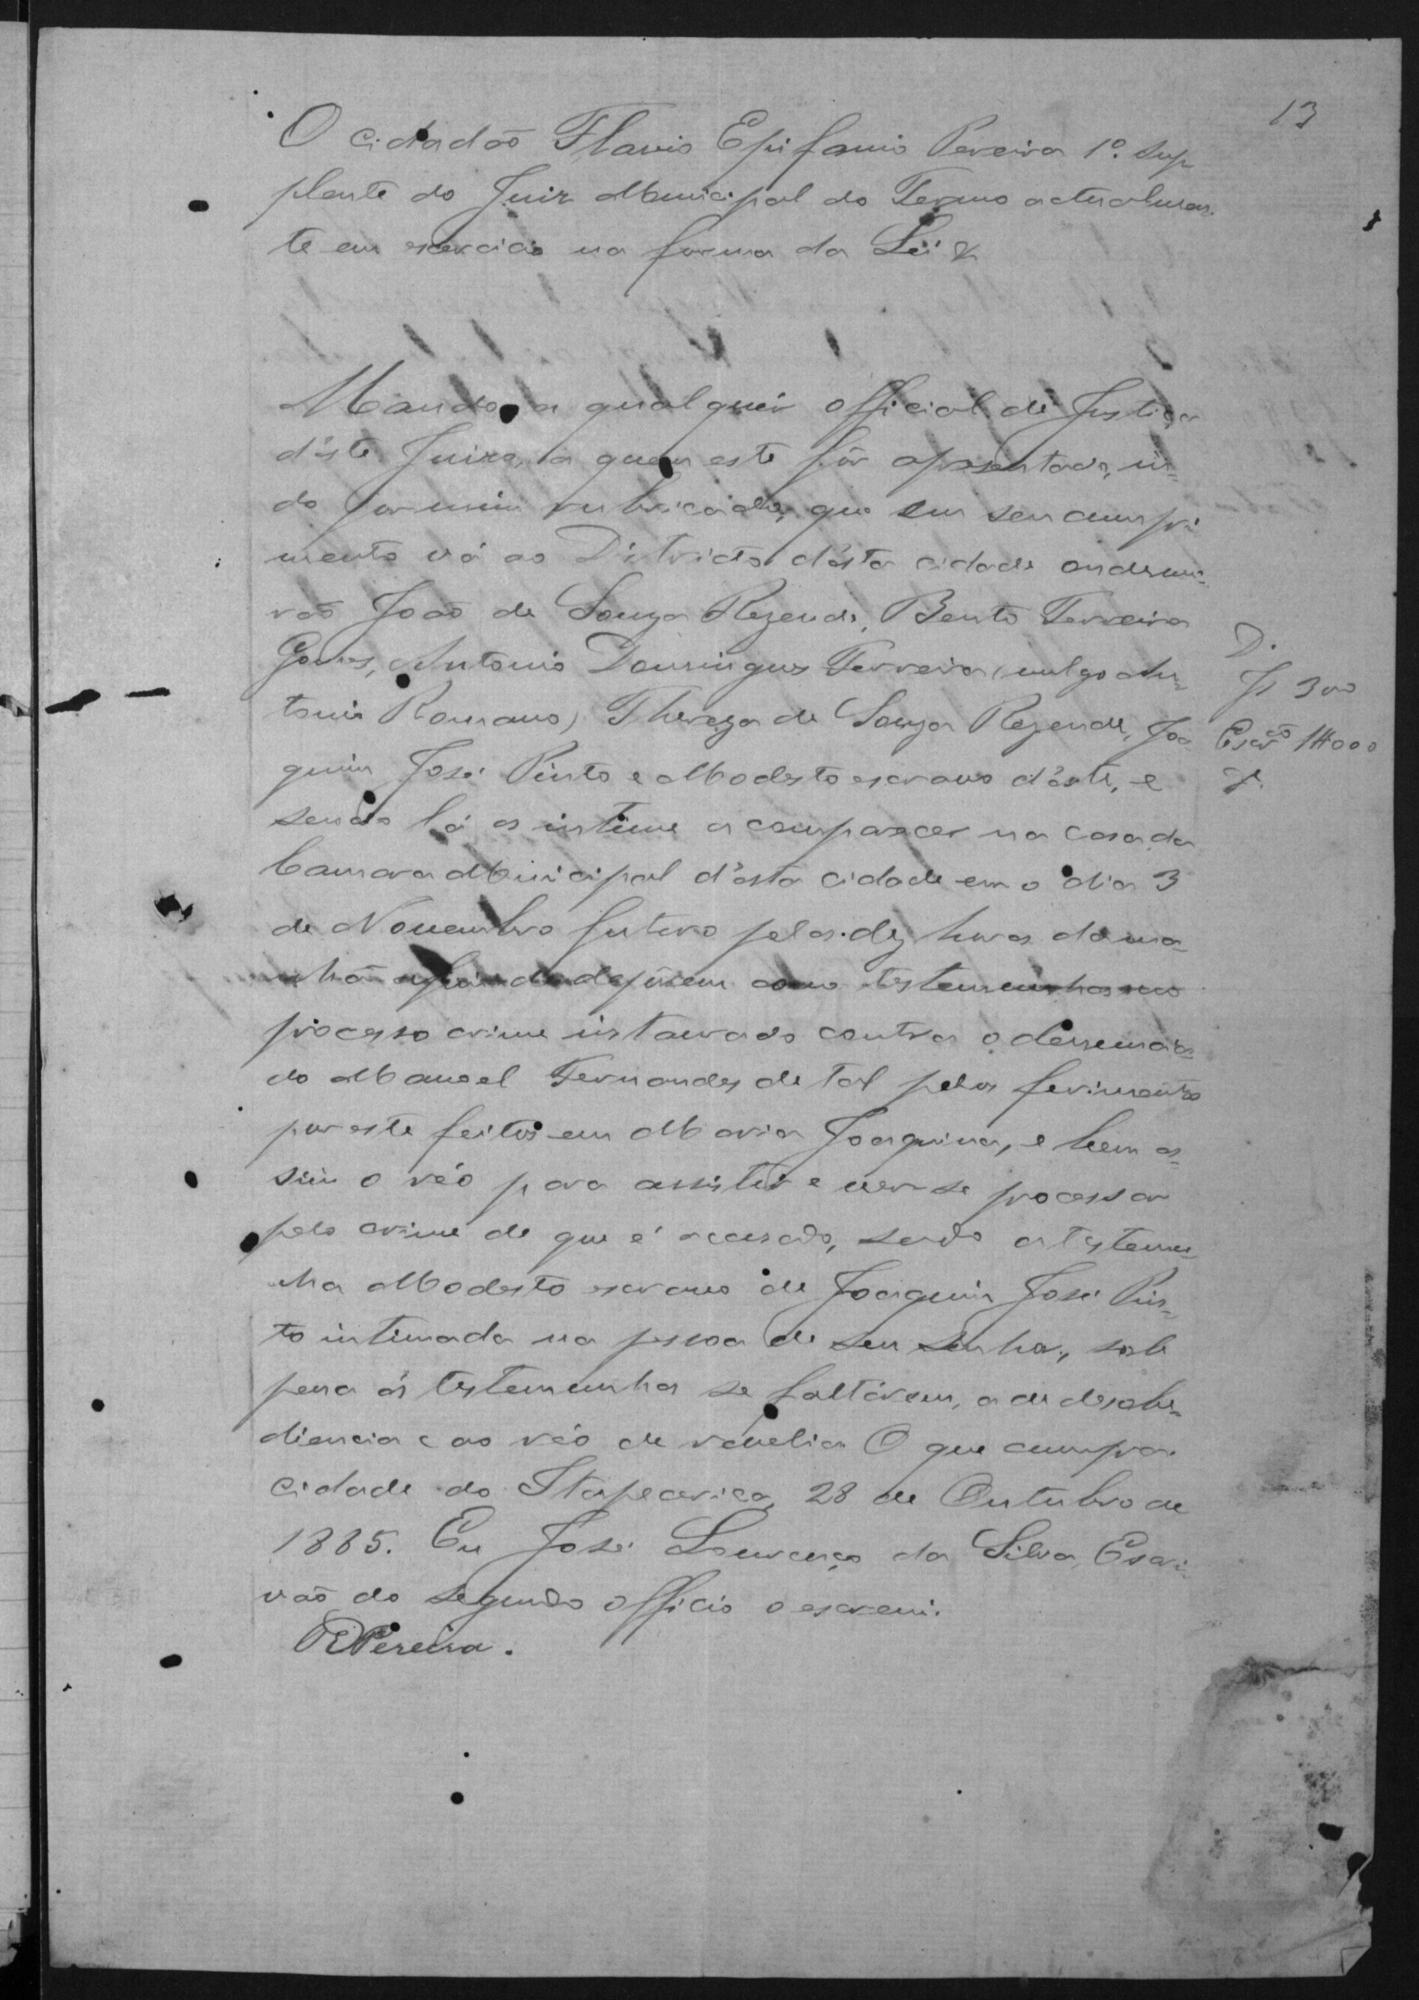 13
O cidadão Flavio Epifanio Pereira 1º. Sup
plente do Juiz Municipal do Termo actualmen-
te em exercicio na forma da Lei &
Mando a qualquer official de Justiça
d'este Juizo, a quem este fôr apresentado, in-
do por mim rubricado, que em seu cumpri
mento vá ao Districto d'ésta cidade onde mo-
rão João de Souza Rezende, Bento Ferreira
Gomes, Antonio Domingues Ferreira (vulgo An-
tonio Romano) Thereza de Souza Rezende, Joa
quim José Pinto e Modesto escravo d'éste, e
sendo lá os intime a comparecer na casa da
Camara Municipal d'ésta cidade em o dia 3
de Novembro futuro pelas dez horas da ma-
nhã afim de depôrem como testemunhas no
processo crime instaurado contra o denuncia-
do Manoel Fernandes de Tal pelos ferimentos
por este feitos em Maria Joaquina, e bem as-
sim o réo para assistir e ver-se processar
pelo crime de que é accusado, sendo a testemu-
nha Modesto escravo de Joaquim José Pin-
to intimada na pessoa de seu senhor, sob
pena ás testemunhas se faltárem, a de desobe-
diencia e ao réo de revelia O que cumpra.
Cidade do Itapecerica, 28 de Outubro de
1885. Eu José Lourenço da Silva, Escri
vão do segundo officio o escrevi.
EPereira.
D.
Js 300
Escão 1#000